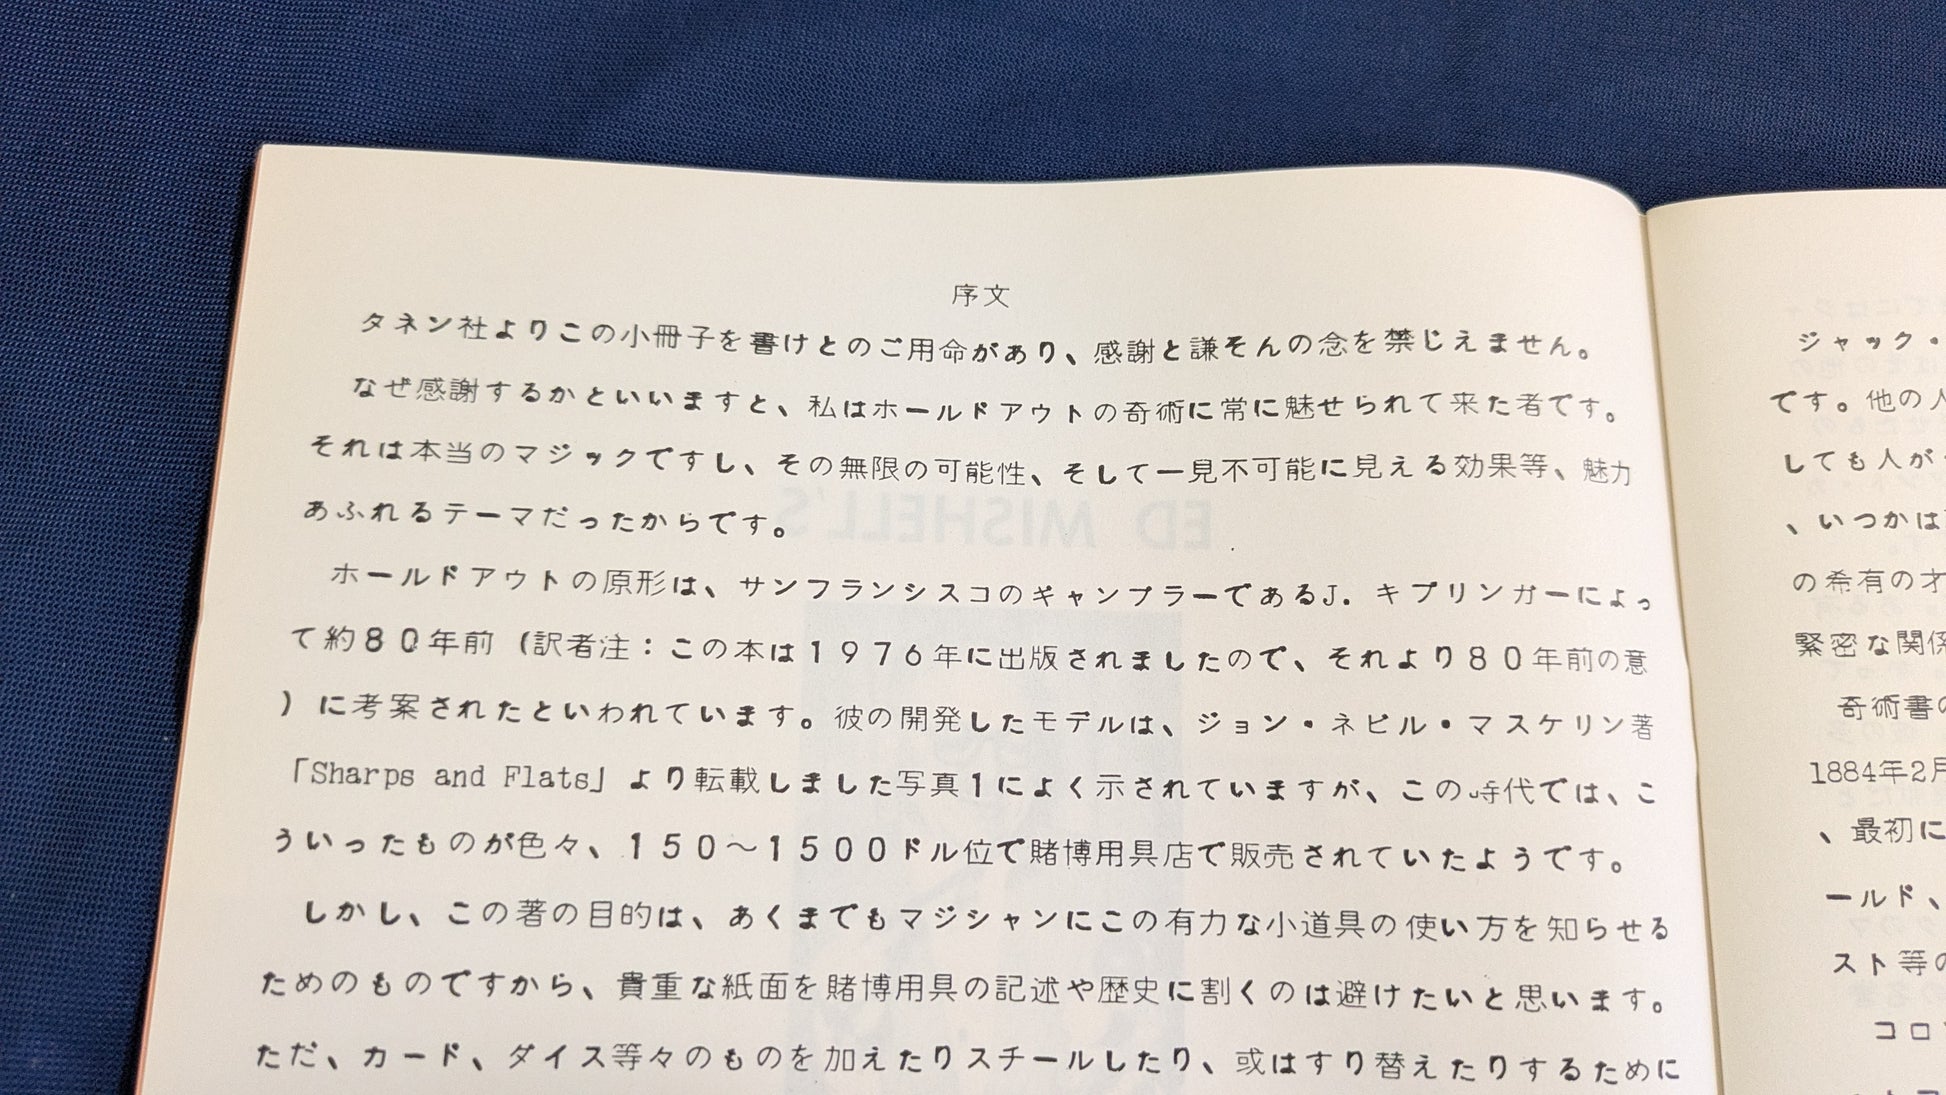 序文
タネン社よりこの小冊子を書けとのご用命があり、感謝と謙そんの念を禁じえません。
なぜ感謝するかといいますと、私はホールドアウトの奇術に常に魅せられて来た者です。
それは本当のマジックですし、その無限の可能性、そして一見不可能に見える効果等、魅力
あふれるテーマだったからです。
ホールドアウトの原形は、サンフランシスコのギャンブラーであるJ. キプリンガーによっ
て約80年前（訳者注：この本は1976年に出版されましたので、それより80年前の意
）に考案されたといわれています。彼の開発したモデルは、ジョン・ネビル・マスケリン著
「Sharps and Flats」より転載しました写真1によく示されていますが、この時代では、こ
ういったものが色々、150〜1500ドル位で賭博用具店で販売されていたようです。
しかし、この著の目的は、あくまでもマジシャンにこの有力な小道具の使い方を知らせる
ためのものですから、貴重な紙面を賭博用具の記述や歴史に割くのは避けたいと思います。
ただ、カード、ダイス等々のものを加えたりスチールしたり、或はすり替えたりするために
ED MISHELL'S
ジャック・
です。他の人
しても人が
、いつかは
の希有の才
緊密な関係
奇術書の
1884年2月
、最初に
ールド、
スト等の
コロ